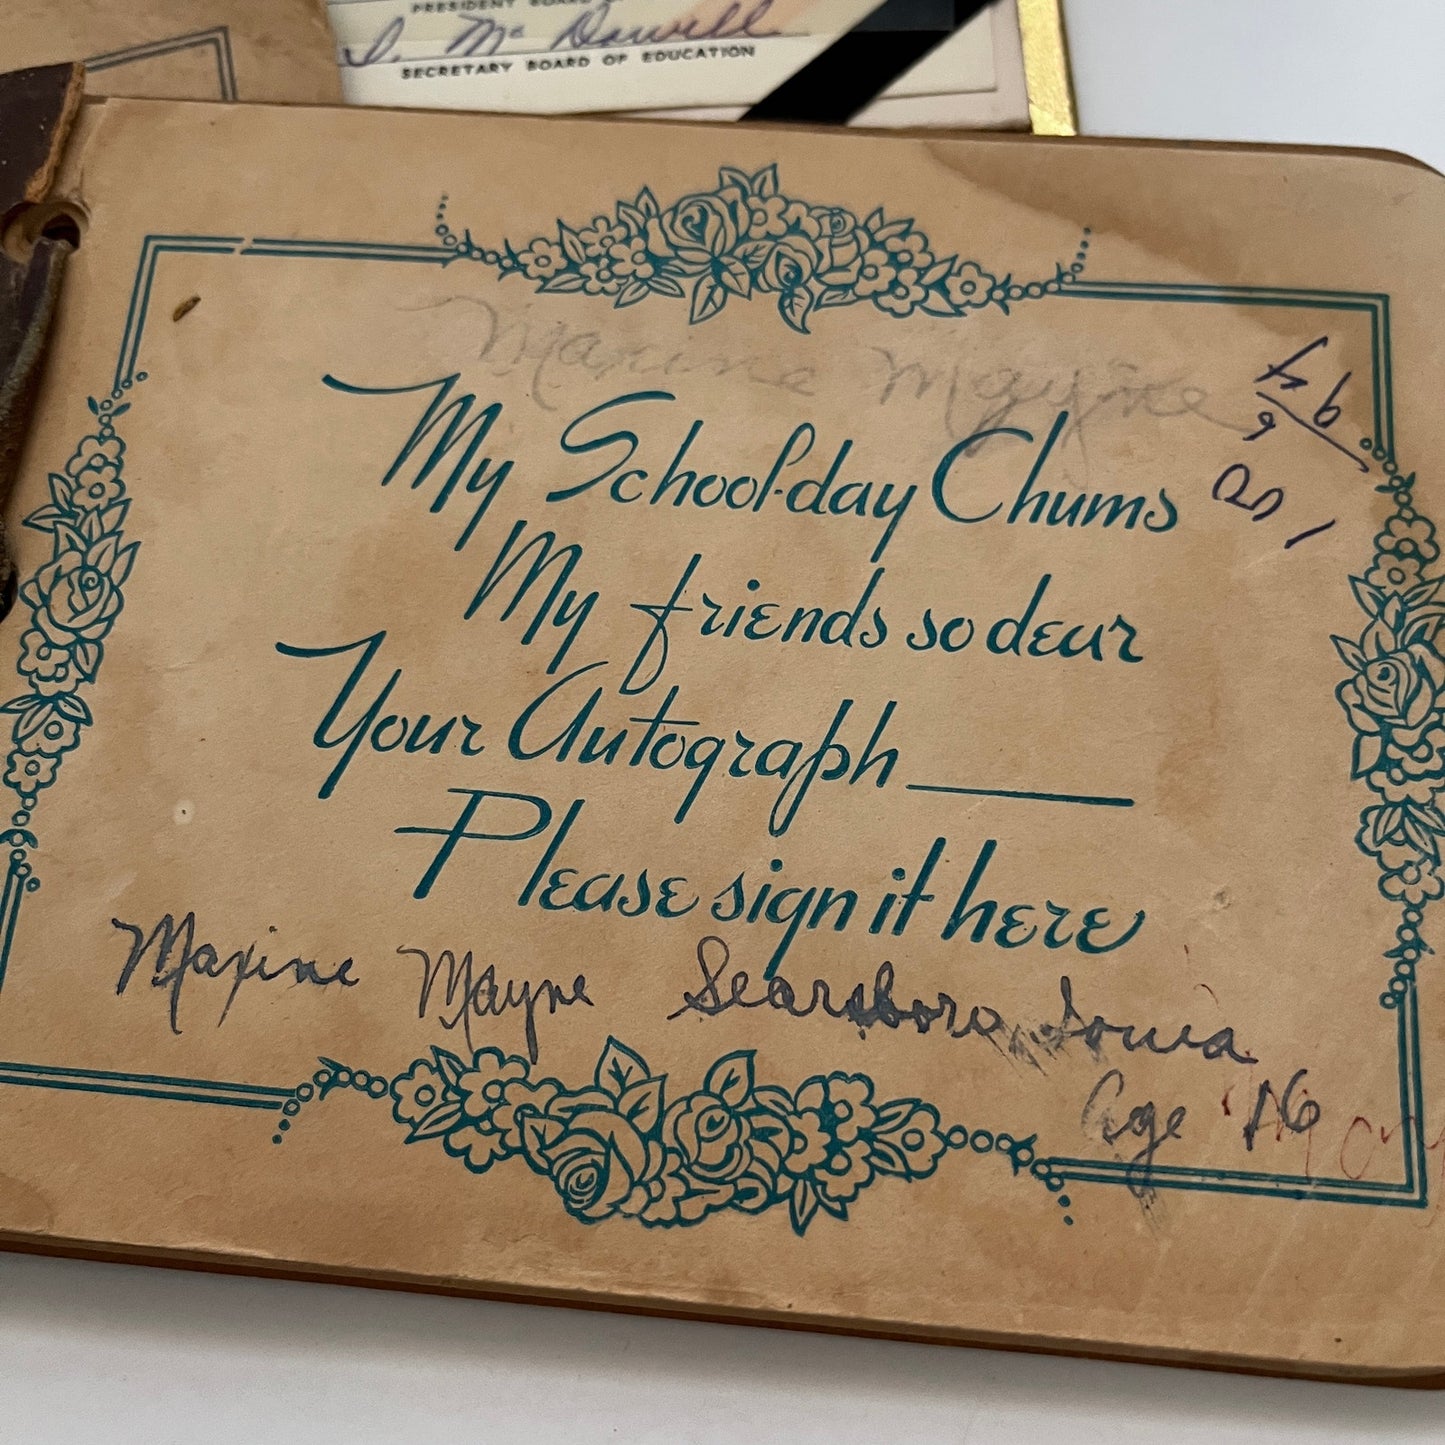 PRESIDENT BOARD
Mc Dowell
SECRETARY BOARD OF EDUCATION
Maxine Mayne
My School-day Chums
My friends so dear
Your Autograph
Please sign it here
Maxine Mayne Searsboro, Iowa
Age 16